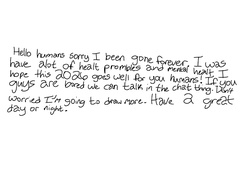 Hello humans sorry I been gone forever, I was
have alot of healt prombles and mental healt I
hope this 2026 goes well for you humans! If you
guys are bored we can talk in the chat thing. Don't
worried I'm going to draw more. Have a great
day or night.